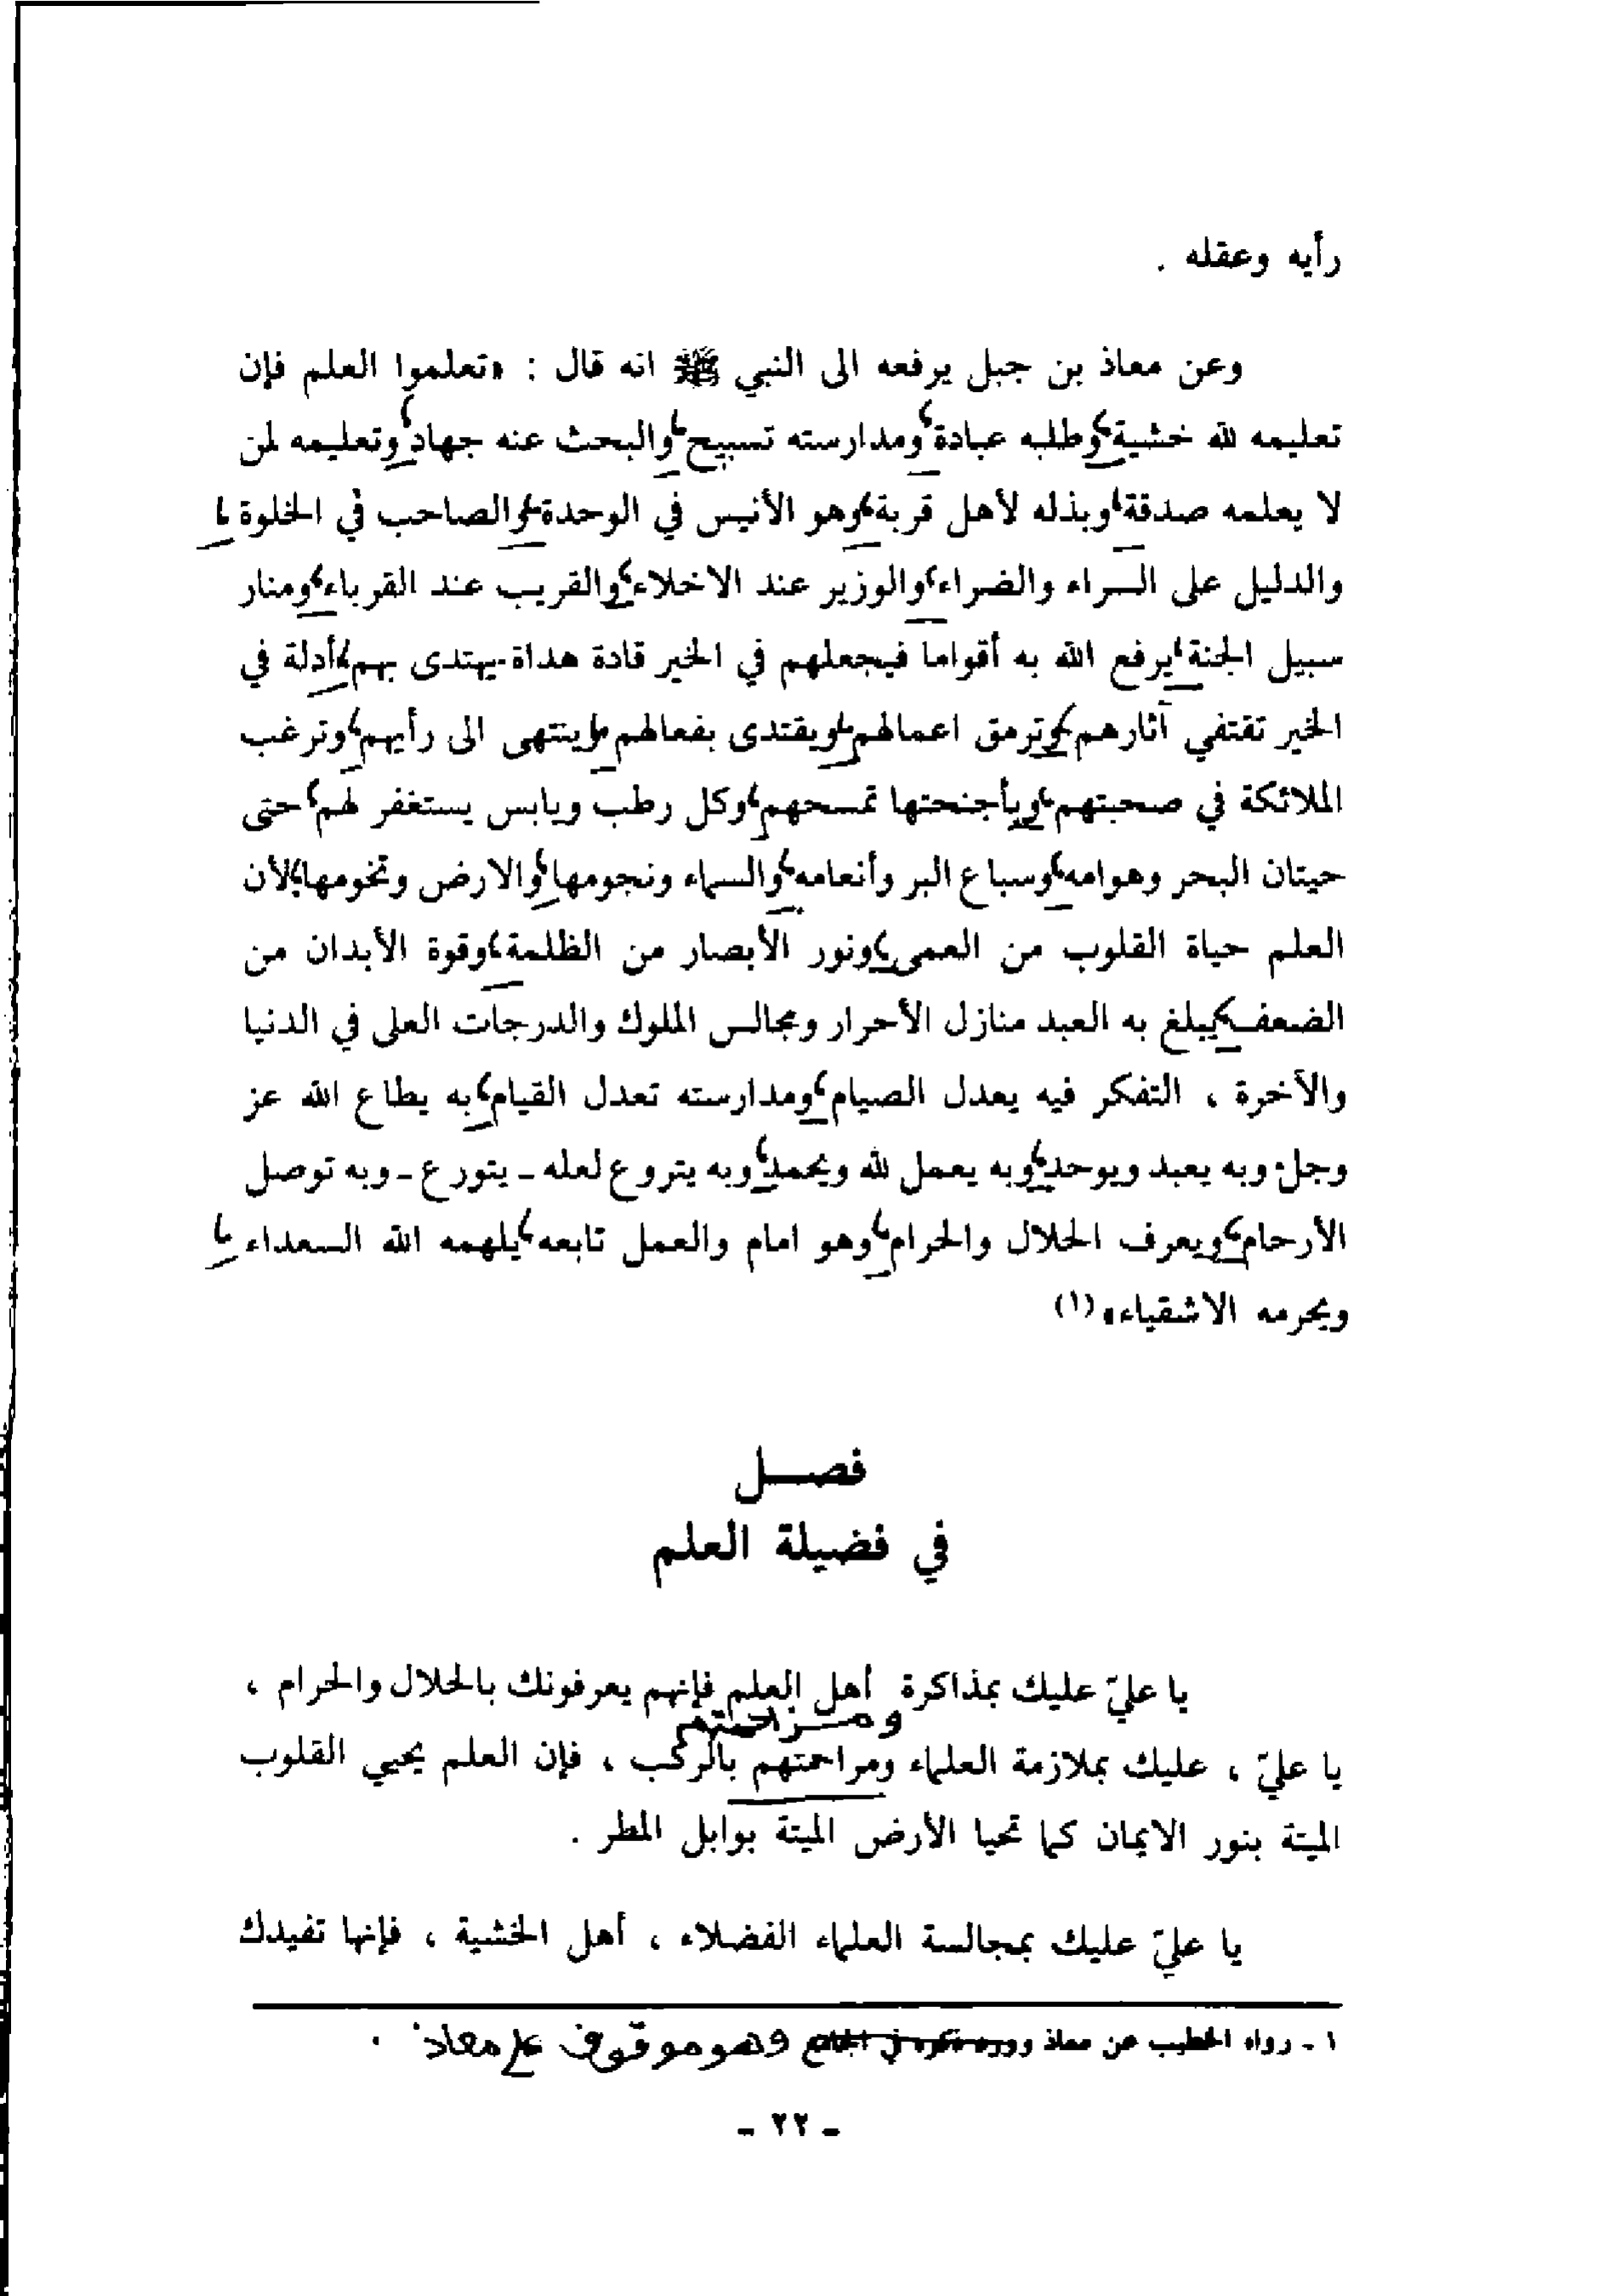 رأيه وعقله .
وعن معاذ بن جبل يرفعه الى النبي ﷺ انه قال : «تعلموا العلم فإن
تعليمه لله خشية، وطلبه عبادة، ومدارسته تسبيح، والبحث عنه جهاد، وتعليمه لمن
لا يعلمه صدقة، وبذله لأهل قربة، وهو الأنيس في الوحدة، والصاحب في الخلوة،
والدليل على السراء والضراء، والوزير عند الاخلاء، والقريب عند القرباء، ومنار
سبيل الجنة، يرفع الله به أقواما فيجعلهم في الخير قادة هداة يهتدى بهم، أدلة في
الخير تقتفي آثارهم، وترمق اعمالهم، ويقتدى بفعالهم، وينتهى الى رأيهم، وترغب
الملائكة في صحبتهم، وبأجنحتها تمسحهم، وكل رطب ويابس يستغفر لهم، حتى
حيتان البحر وهوامه، وسباع البر وأنعامه، والسماء ونجومها، والارض وتخومها، لأن
العلم حياة القلوب من العمى، ونور الأبصار من الظلمة، وقوة الأبدان من
الضعف، يبلغ به العبد منازل الأحرار ومجالس الملوك والدرجات العلى في الدنيا
والآخرة ، التفكر فيه يعدل الصيام، ومدارسته تعدل القيام، به يطاع الله عز
وجل، وبه يعبد ويوحد، وبه يعمل لله ويحمد، وبه يتروع لعله ـ يتورع ـ وبه توصل
الأرحام، ويعرف الحلال والحرام، وهو امام والعمل تابعه، يلهمه الله السعداء،
ويحرمه الاشقياء» (١)
فصل
في فضيلة العلم
يا عليّ عليك بمذاكرة أهل العلم فإنهم يعرفونك بالحلال والحرام ،
ومزاحمتهم
يا عليّ ، عليك بملازمة العلماء ومراحمتهم بالركب ، فإن العلم يحيي القلوب
الميتة بنور الايمان كما تحيا الأرض الميتة بوابل المطر .
يا عليّ عليك بمجالسة العلماء الفضلاء ، أهل الخشية ، فإنها تفيدك
١ ـ رواه الخطيب عن معاذ وورد ذكره في الجامع وهو موقوف على معاذ .
ـ ٢٢ ـ